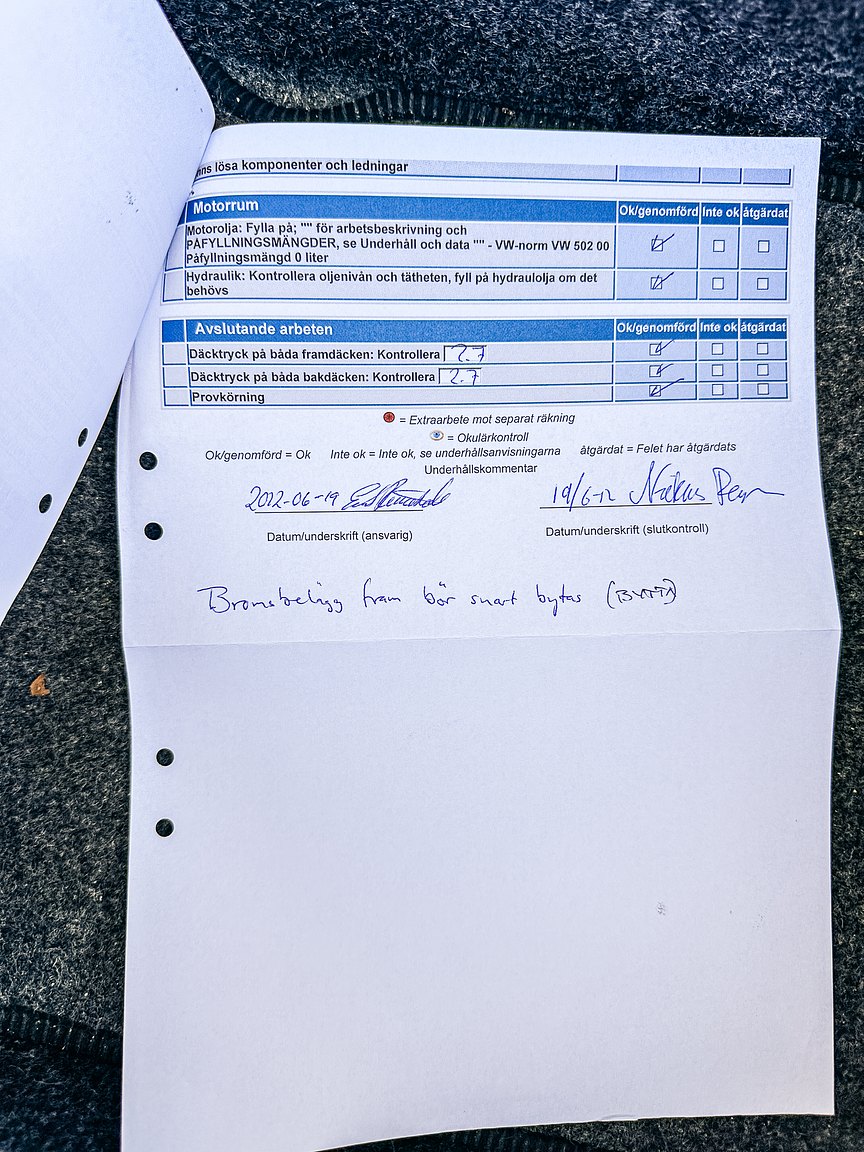 lösa komponenter och ledningar
Motorrum Ok/genomförd Inte ok åtgärdat
Motorolja: Fylla på; "" för arbetsbeskrivning och
PÅFYLLNINGSMÄNGDER, se Underhåll och data "" - VW-norm VW 502 00
Påfyllningsmängd 0 liter
Hydraulik: Kontrollera oljenivån och tätheten, fyll på hydraulolja om det
behövs
Avslutande arbeten Ok/genomförd Inte ok åtgärdat
Däcktryck på båda framdäcken: Kontrollera 2.7
Däcktryck på båda bakdäcken: Kontrollera 2.7
Provkörning
= Extraarbete mot separat räkning
= Okulärkontroll
Ok/genomförd = Ok Inte ok = Inte ok, se underhållsanvisningarna åtgärdat = Felet har åtgärdats
Underhållskommentar
2012-06-19 19/6-12 Niklas
Datum/underskrift (ansvarig) Datum/underskrift (slutkontroll)
Bromsbelägg fram bör snart bytas (BYTTA)